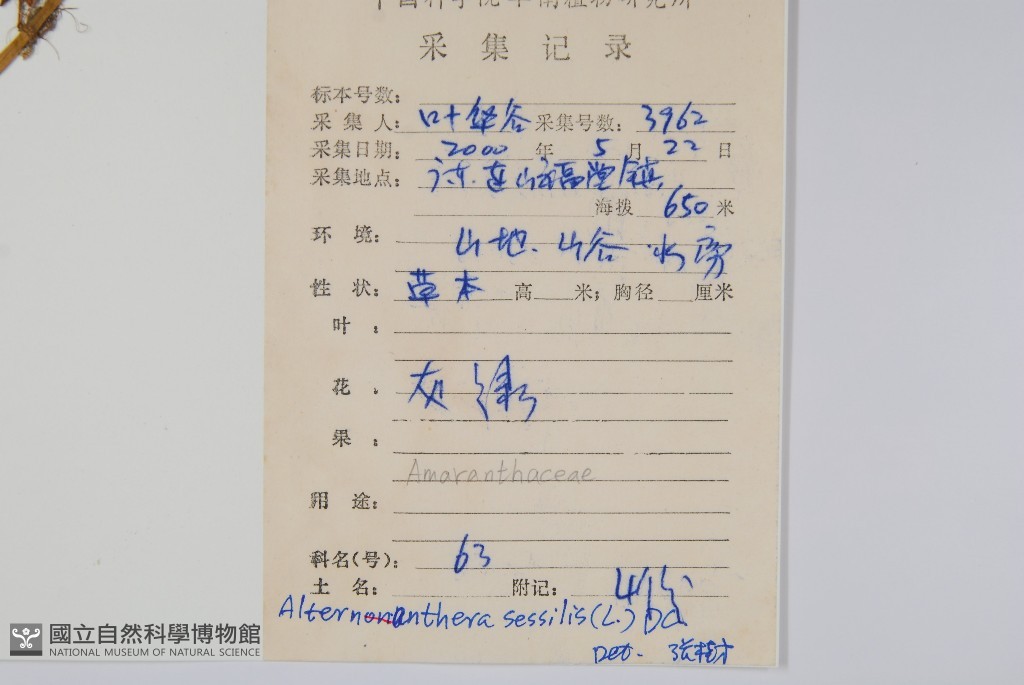 中国科学院华南植物研究所
采集记录
标本号数：
采集人：叶华谷 采集号数：3962
采集日期：2000年5月22日
采集地点：广东.连山福堂镇
海拨 650米
环境：山地、山谷水旁
性状：草本 高 米；胸径 厘米
叶：
花：灰绿
果：
Amaranthaceae
用途：
科名(号)：63
土名： 附记：4份
Alternanthera sessilis (L.) DC.
Det. 张树
國立自然科學博物館
NATIONAL MUSEUM OF NATURAL SCIENCE